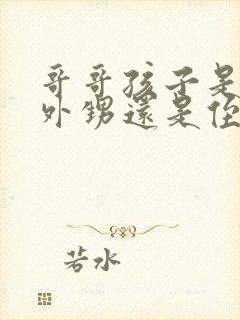 哥哥孩子是
外甥還是侄
若水